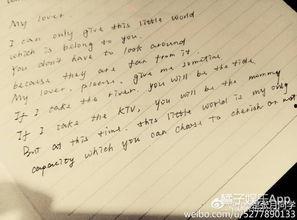 My lover.
I can only give this little world
which is belong to you.
You don't have to look around
because they are far from it.
My lover, please, give me sometime
If I take the river, you will be the tide
If I take the KTV, you will be the mommy
But at this time, this little world is my only
capacity which you can chose to cherish or not
橘子娱乐App
weibo.com/u/5277890133